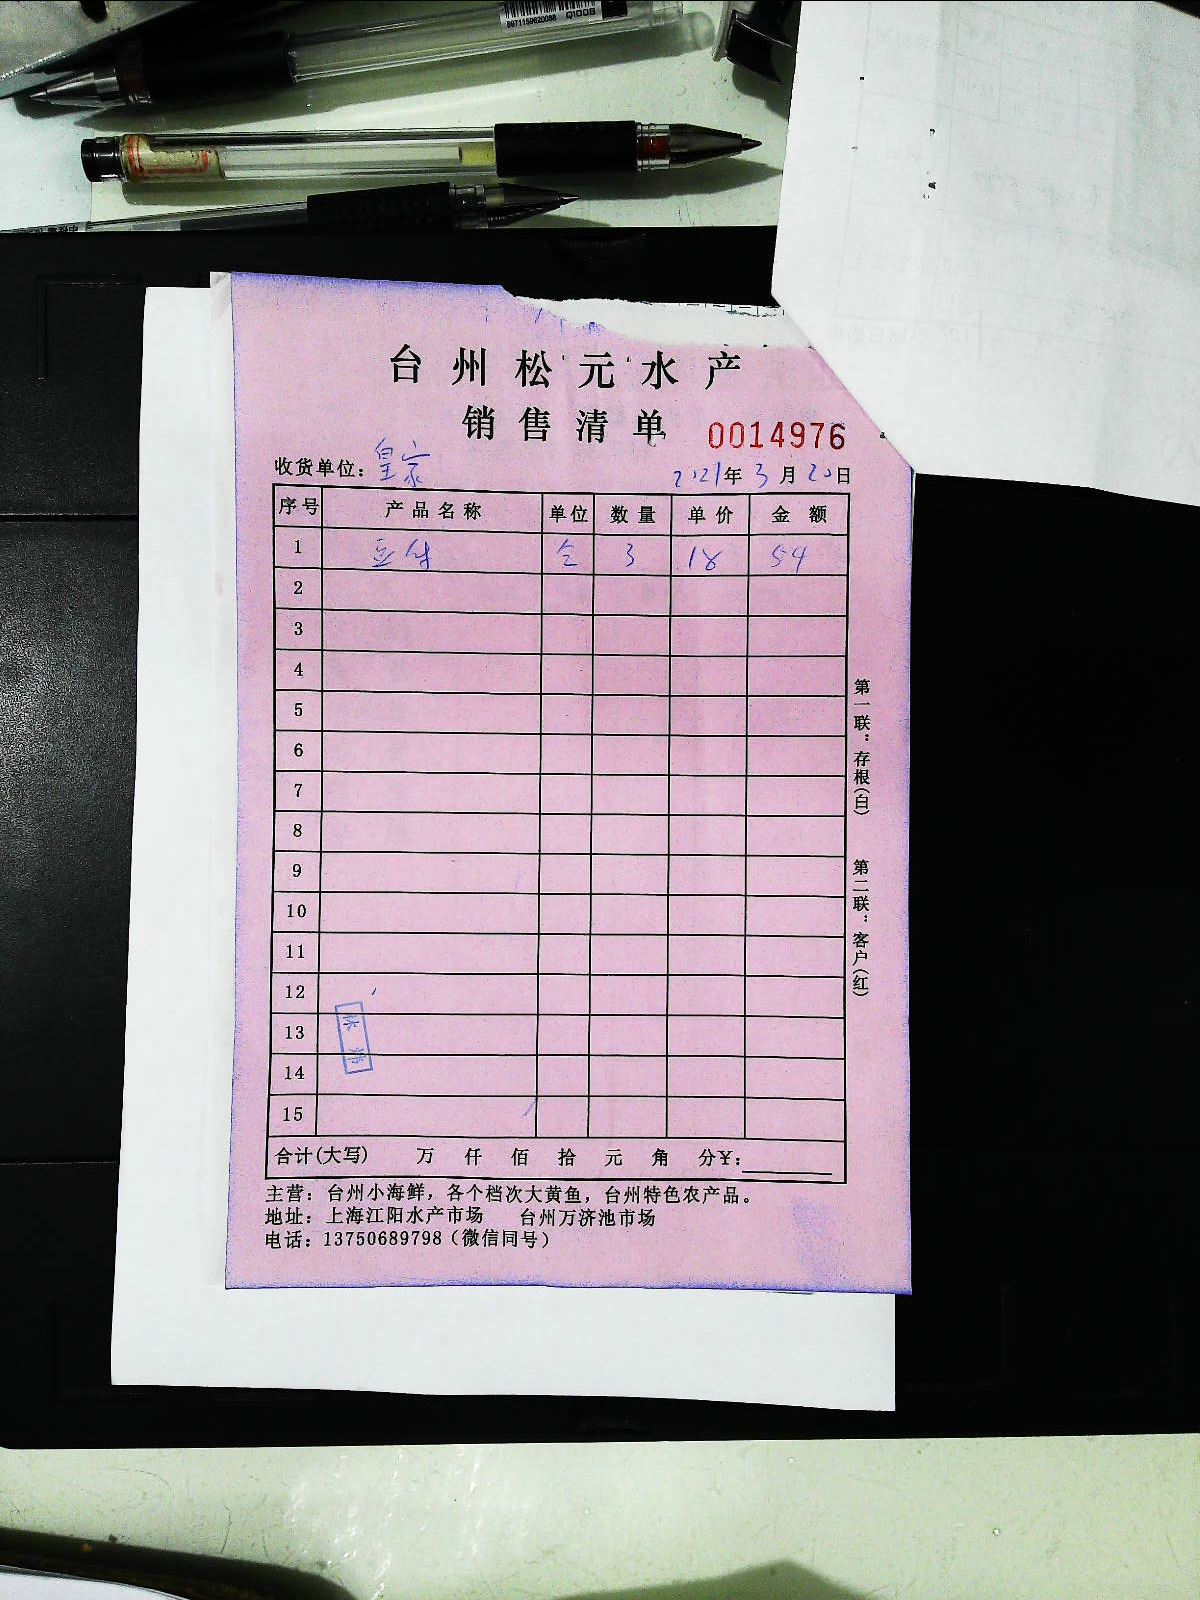 6971159620088 Q1009
台州松元水产
销售清单 0014976
收货单位：皇家 2021年3月20日
序号 产品名称 单位 数量 单价 金额
1 3 18 54
2
3
4
5
6
7
8
9
10
11
12
13
14
15
合计(大写) 万 仟 佰 拾 元 角 分¥：
主营：台州小海鲜，各个档次大黄鱼，台州特色农产品。
地址：上海江阳水产市场 台州万济池市场
电话：13750689798（微信同号）
第一联：存根(白)
第二联：客户(红)